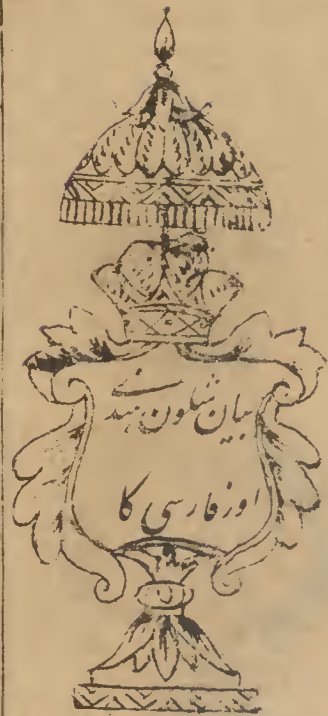 بیان شگون ہندے
اور فارسی کا